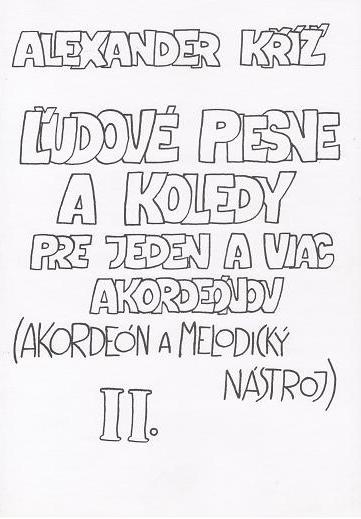 ALEXANDER KŘÍŽ
ĽUDOVÉ PIESNE
A KOLEDY
PRE JEDEN A VIAC
AKORDEÓNOV
(AKORDEÓN A MELODICKÝ
NÁSTROJ)
II.